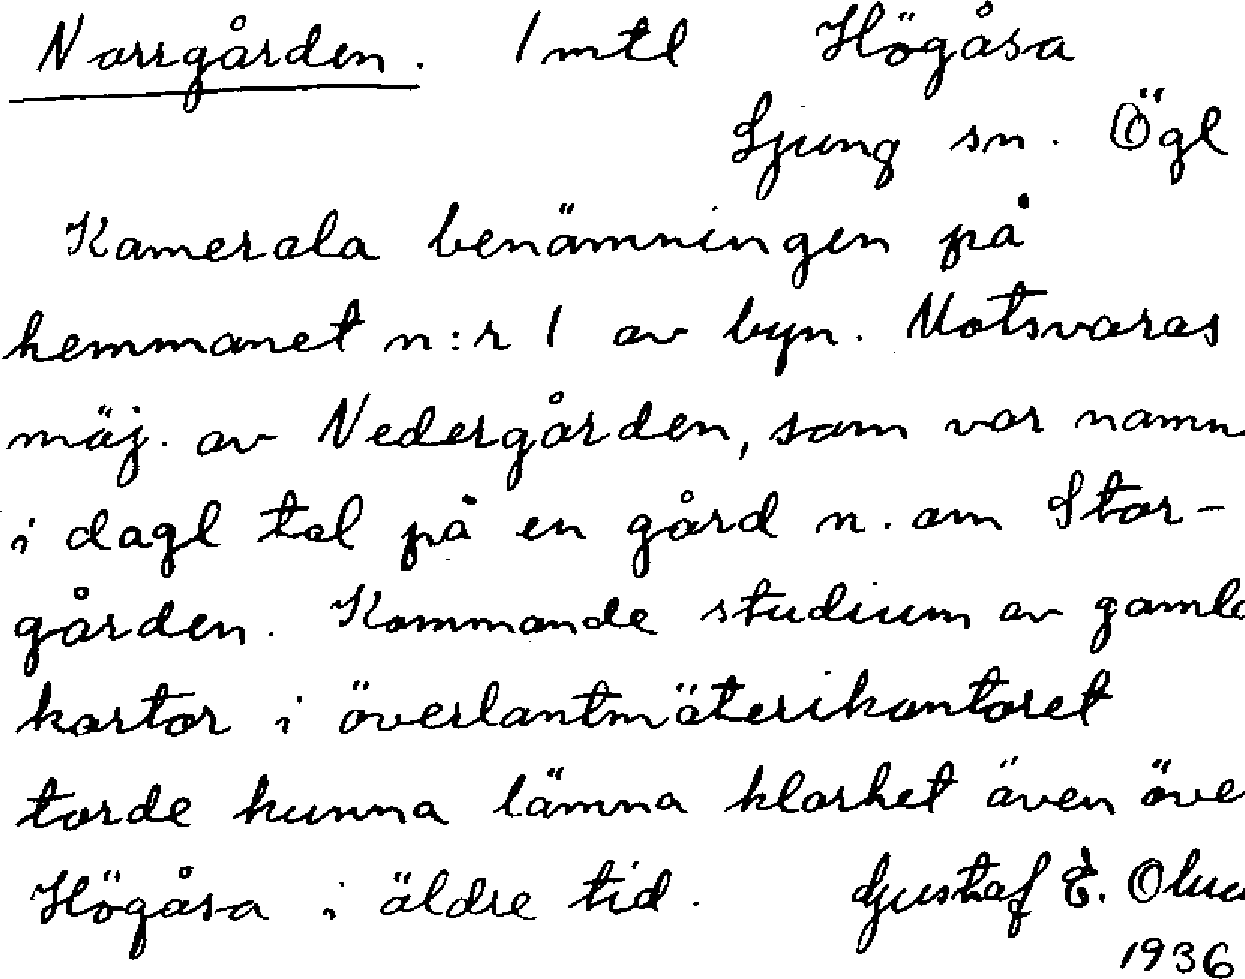 Norrgården. 1 mtl Högåsa
Ljung sn. Ögl
Kamerala benämningen på
hemmanet n:r 1 av byn. Motsvaras
möj. av Nedergården, som var namn
i dagl tal på en gård n. om Stor-
gården. Kommande studium av gamla
kartor i överlantmäterikontoret
torde kunna lämna klarhet även öve
Högåsa i äldre tid. Gustaf E.
1936